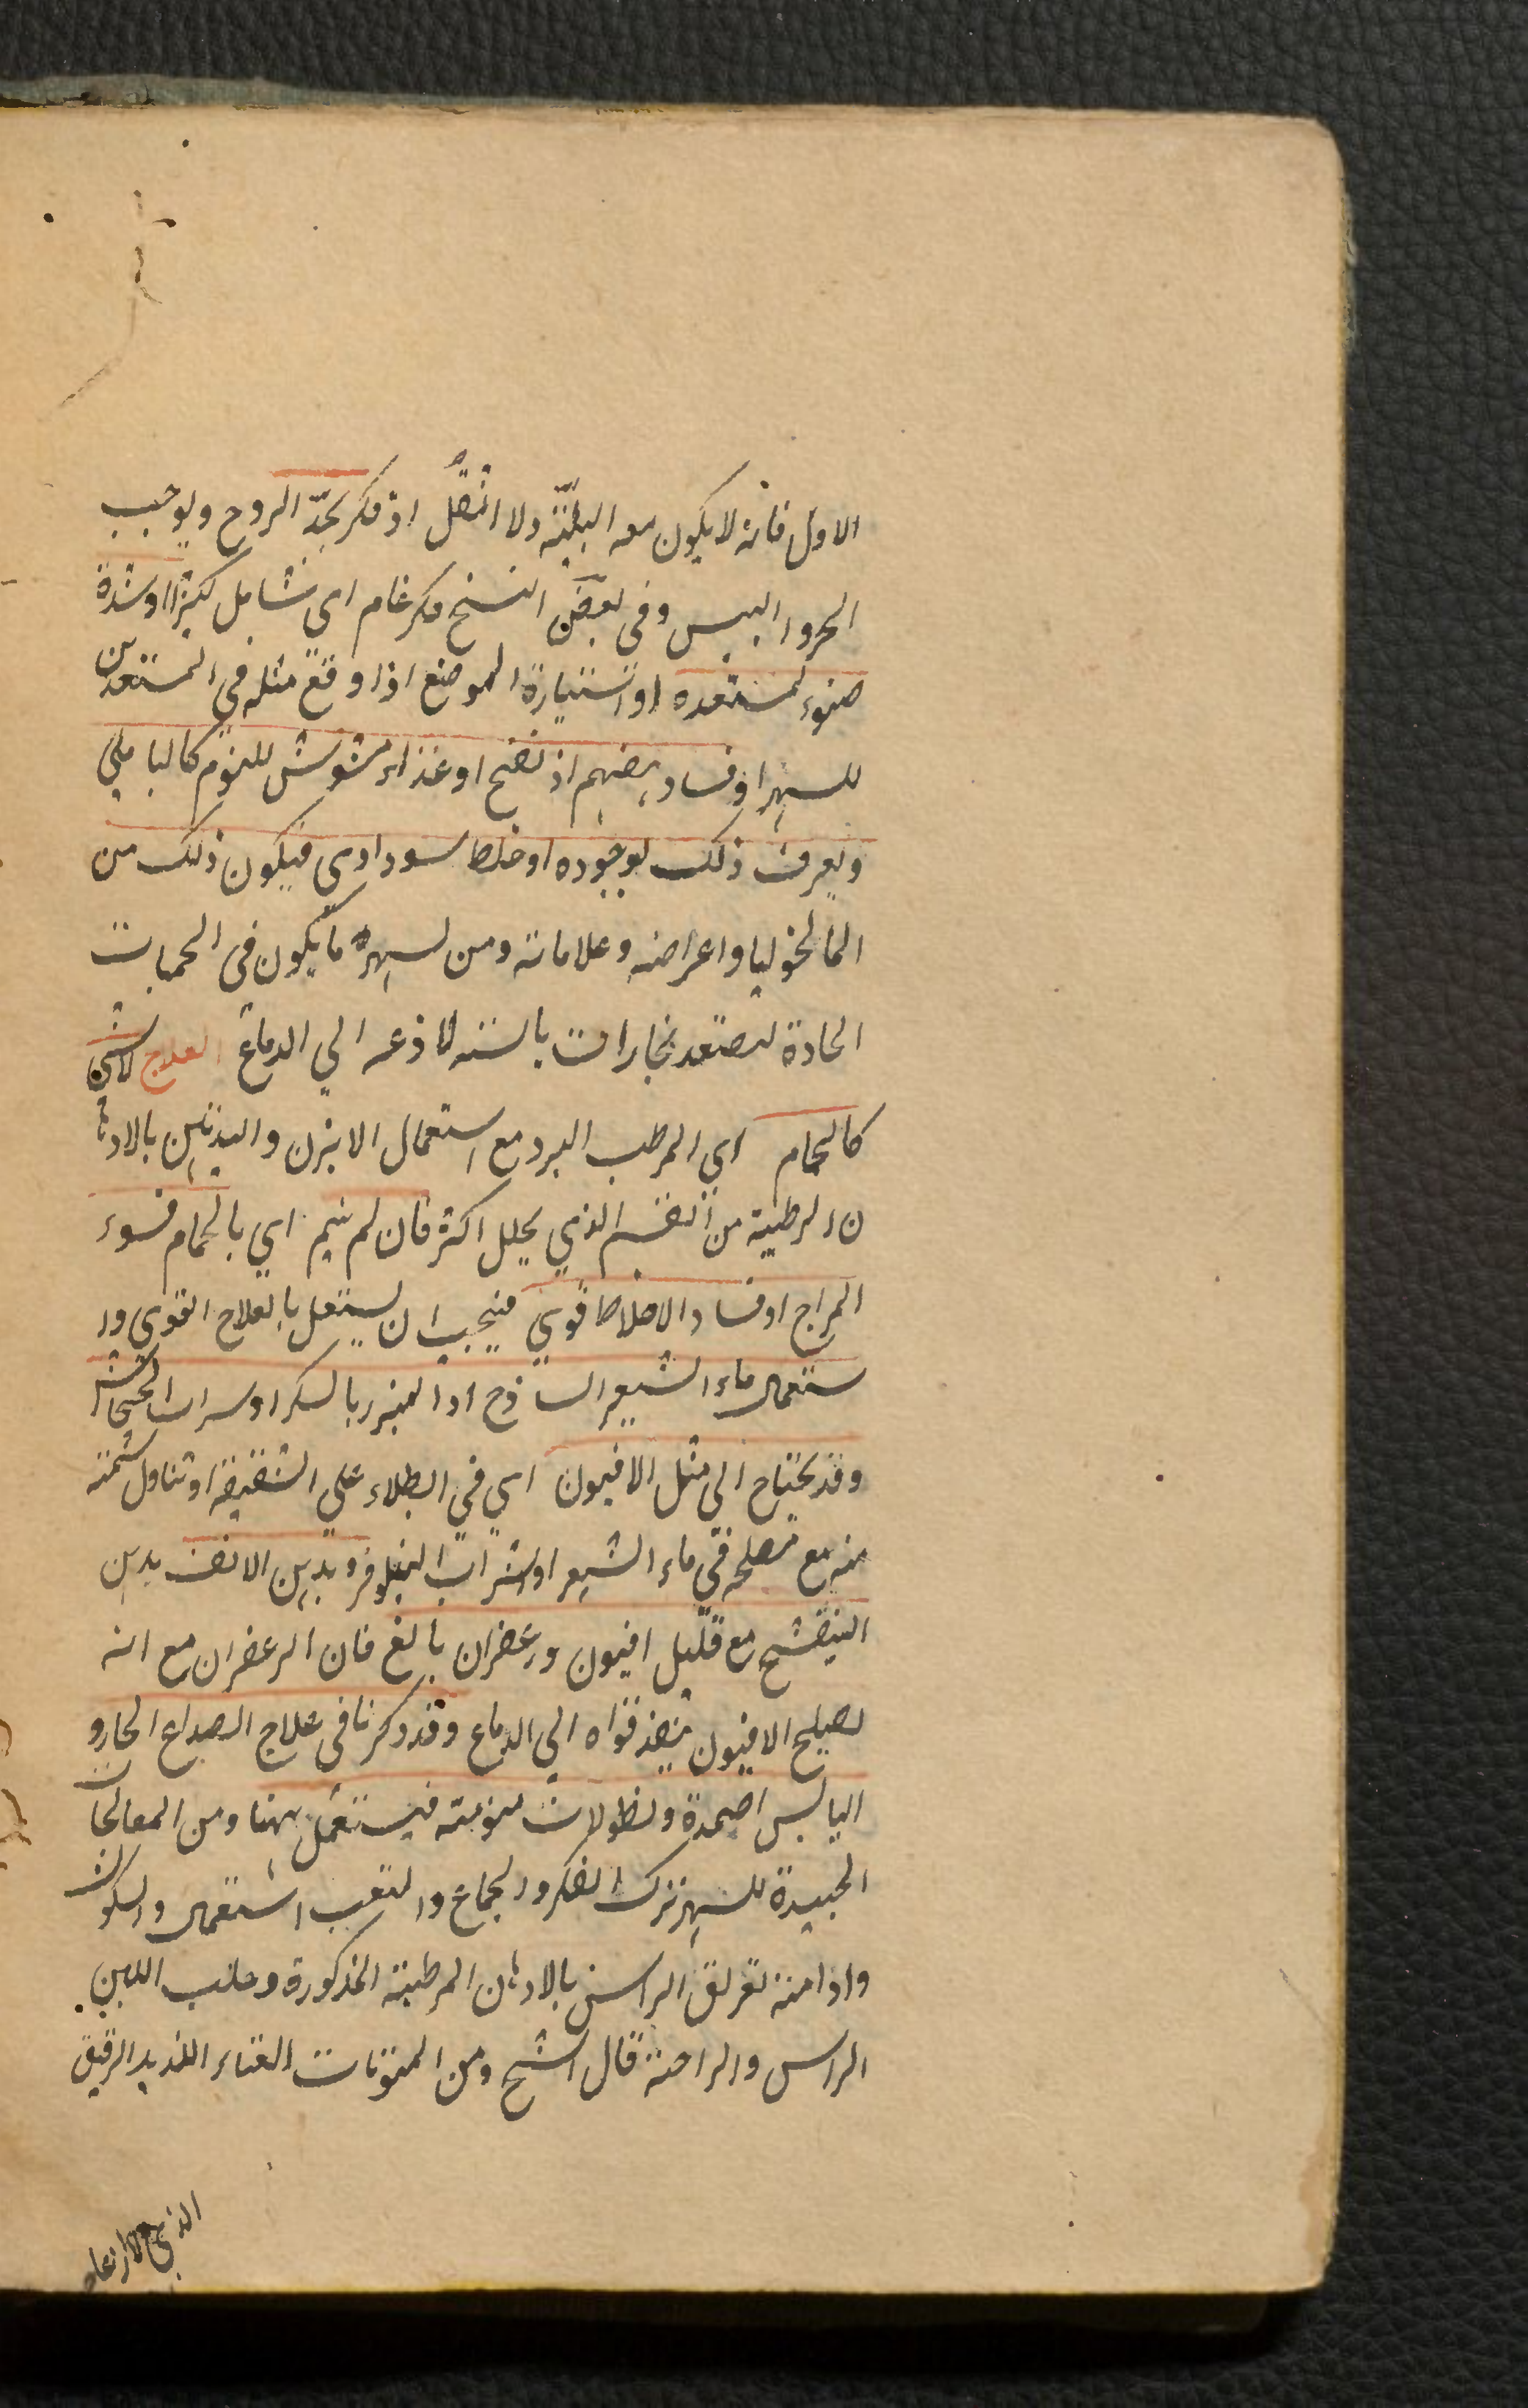 الاول فانه لا يكون معه البلتة ولا الثقل او فكر يحد الروح ويوجب
الحر واليبس وفى بعض النسخ فكر غام اى شامل كثيرا او شدة
ضوء لمستعده او استنارة الموضع اذا وقع مثله فى المستعدين
للسهر او فساد هضم او نفخ او غذاء مشوش للنوم كالباقلى
ويعرف ذلك بوجوده او خلط سوداوى فيكون ذلك من
المالنخوليا واعراضه وعلاماته ومن السهر ما يكون فى الحميات
الحادة لتصعد بخارات يابسته لاذعه الي الدماغ العلاج لاشئ
كالحمام اي المرطب المبرد مع استعمال الابزن والتدهين بالادها
ن الرطبة من القسم الذي يحلل اكثر فان لم ينم اي بالحمام فسوء
المزاج او فساد الاخلاط قوي فيجب ان يستعمل بالعلاج القوى وا
ستعمال ماء الشعير الساذج او المبزر بالسكر او شراب الخشخاش
وقد يحتاج الى مثل الافيون اي في الطلاء على الشقيقة او تناول شمته
منه مع مصلحه في ماء الشعير او شراب النيلوفر وتدهين الانف بدهن
البنفشج مع قليل افيون وزعفران بالغ فان الزعفران مع انه
يصلح الافيون ينفذ قواه الي الدماغ وقد ذكرنا فى علاج الصداع الحار و
اليابس اضمدة ونطولات منومته فيستعمل ههنا ومن المعالجات
الجيدة للسهر ترك الفكر والجماع والتعب استعمال والسكون
وادامته تعريق الراس بالادهان المرطبة المذكورة وحلب اللبن
الراس والراحة قال الشيخ ومن المنومات الغناء اللذيد الرقيق
الذي لا ازعاج